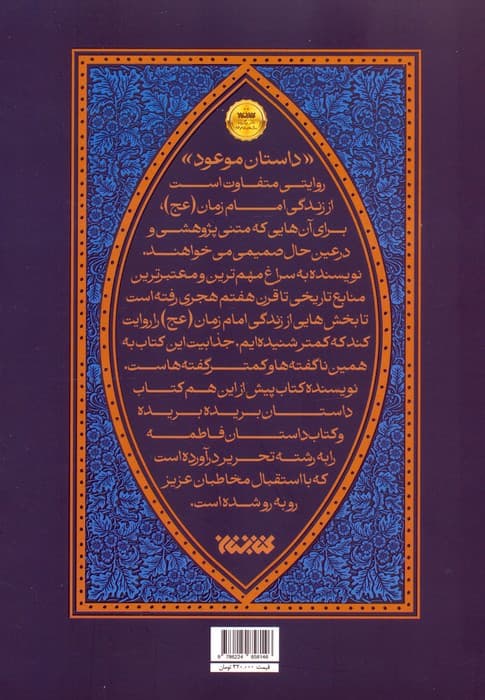 «داستان موعود»
روایتی متفاوت است
از زندگی امام زمان (عج)،
برای آن‌هایی که متنی پژوهشی و
درعین حال صمیمی می‌خواهند.
نویسنده به سراغ مهم‌ترین و معتبرترین
منابع تاریخی تا قرن هفتم هجری رفته است
تا بخش‌هایی از زندگی امام زمان (عج) را روایت
کند که کمتر شنیده‌ایم. جذابیت این کتاب به
همین ناگفته‌ها و کمتر گفته‌هاست.
نویسنده کتاب پیش از این هم کتاب
داستان بریده بریده
و کتاب داستان فاطمه
را به رشته تحریر درآورده است
که با استقبال مخاطبان عزیز
روبه‌رو شده است.
کتابستان
9 786224 858146
قیمت: ۳۲۰,۰۰۰ تومان